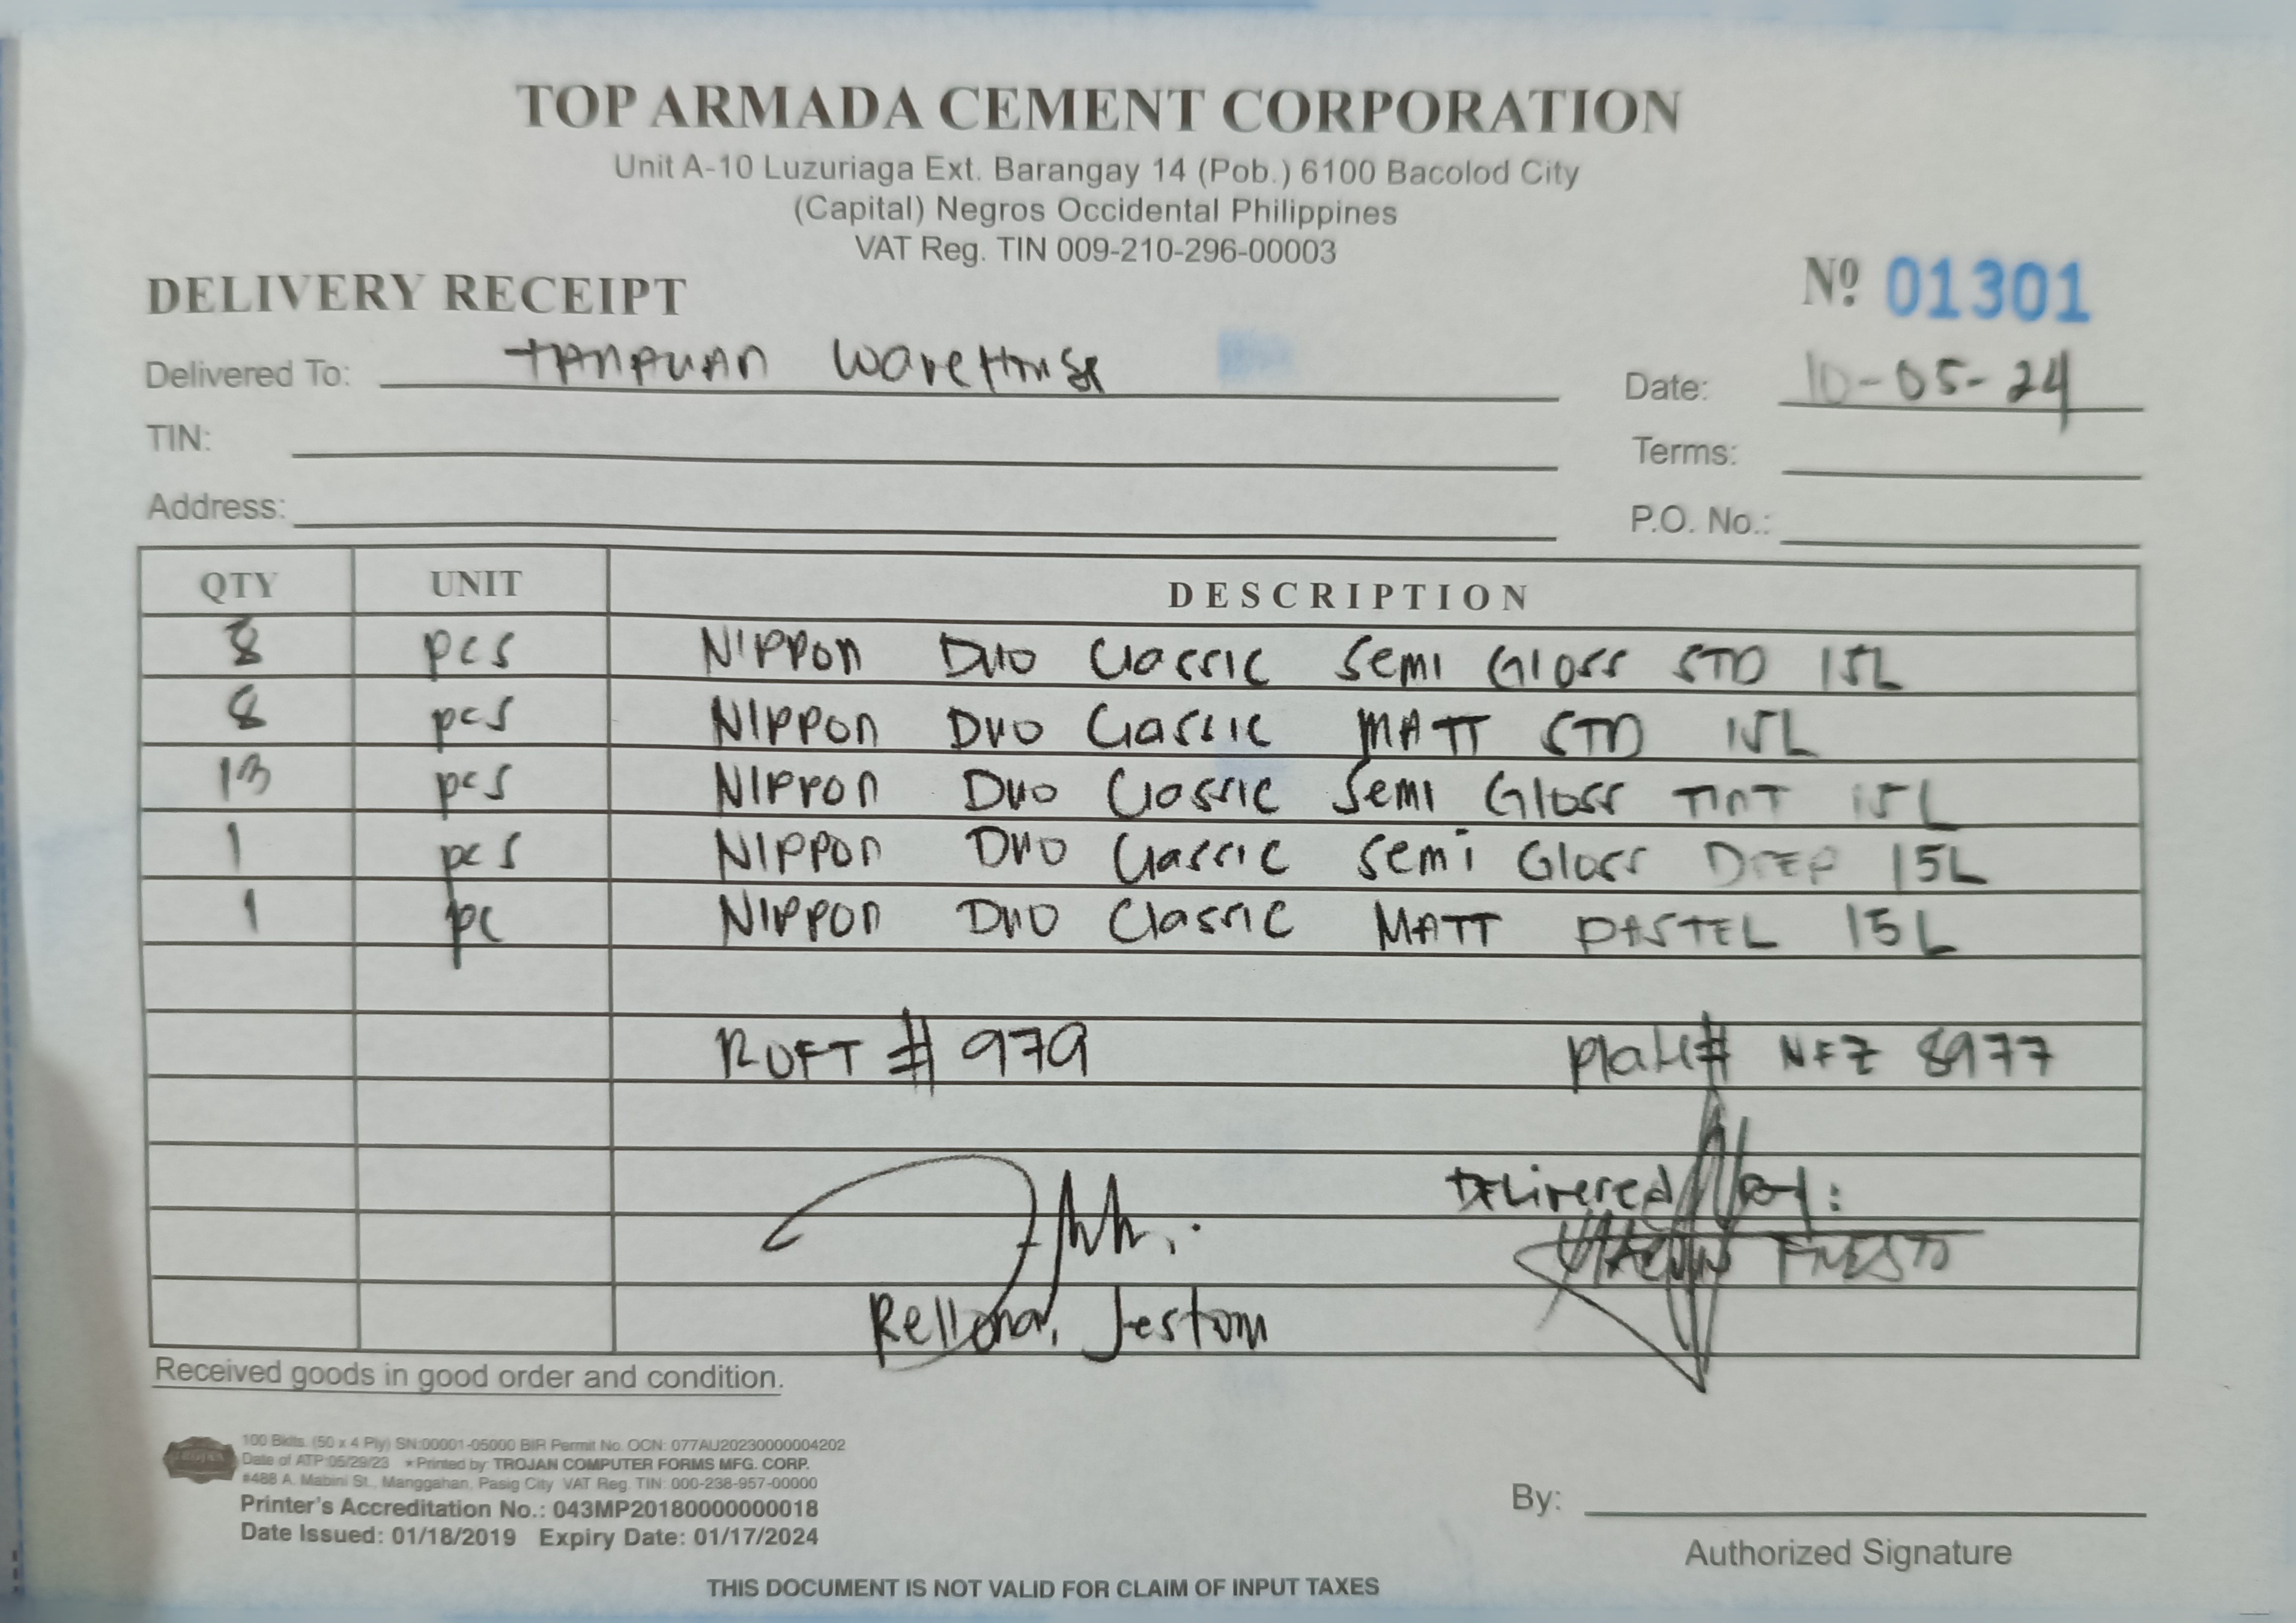 TOP ARMADA CEMENT CORPORATION
Unit A-10 Luzuriaga Ext. Barangay 14 (Pob.) 6100 Bacolod City
(Capital) Negros Occidental Philippines
VAT Reg. TIN 009-210-296-00003
DELIVERY RECEIPT
Nº 01301
Delivered To: TANPUAN WareHouse
Date: 10-05-24
TIN:
Terms:
Address:
P.O. No.:
QTY UNIT DESCRIPTION
8 pcs NIPPON DUO Classic Semi Gloss STD 15L
8 pcs NIPPON DUO Classic MATT STD 15L
13 pcs NIPPON DUO Classic Semi Gloss TINT 15L
1 pcs NIPPON DUO Classic Semi Gloss DEEP 15L
1 pc NIPPON DUO Classic MATT PASTEL 15L
RUFT # 979 Plate# NFZ 8977
Delivered by:
Rellona, Jestom
Received goods in good order and condition.
100 Bklts. (50 x 4 Ply) SN:00001-05000 BIR Permit No. OCN: 077AU20230000004202
Date of ATP:05/29/23 * Printed by: TROJAN COMPUTER FORMS MFG. CORP.
#488 A. Mabini St., Manggahan, Pasig City VAT Reg. TIN: 000-238-957-00000
Printer's Accreditation No.: 043MP20180000000018
Date Issued: 01/18/2019 Expiry Date: 01/17/2024
By:
Authorized Signature
THIS DOCUMENT IS NOT VALID FOR CLAIM OF INPUT TAXES